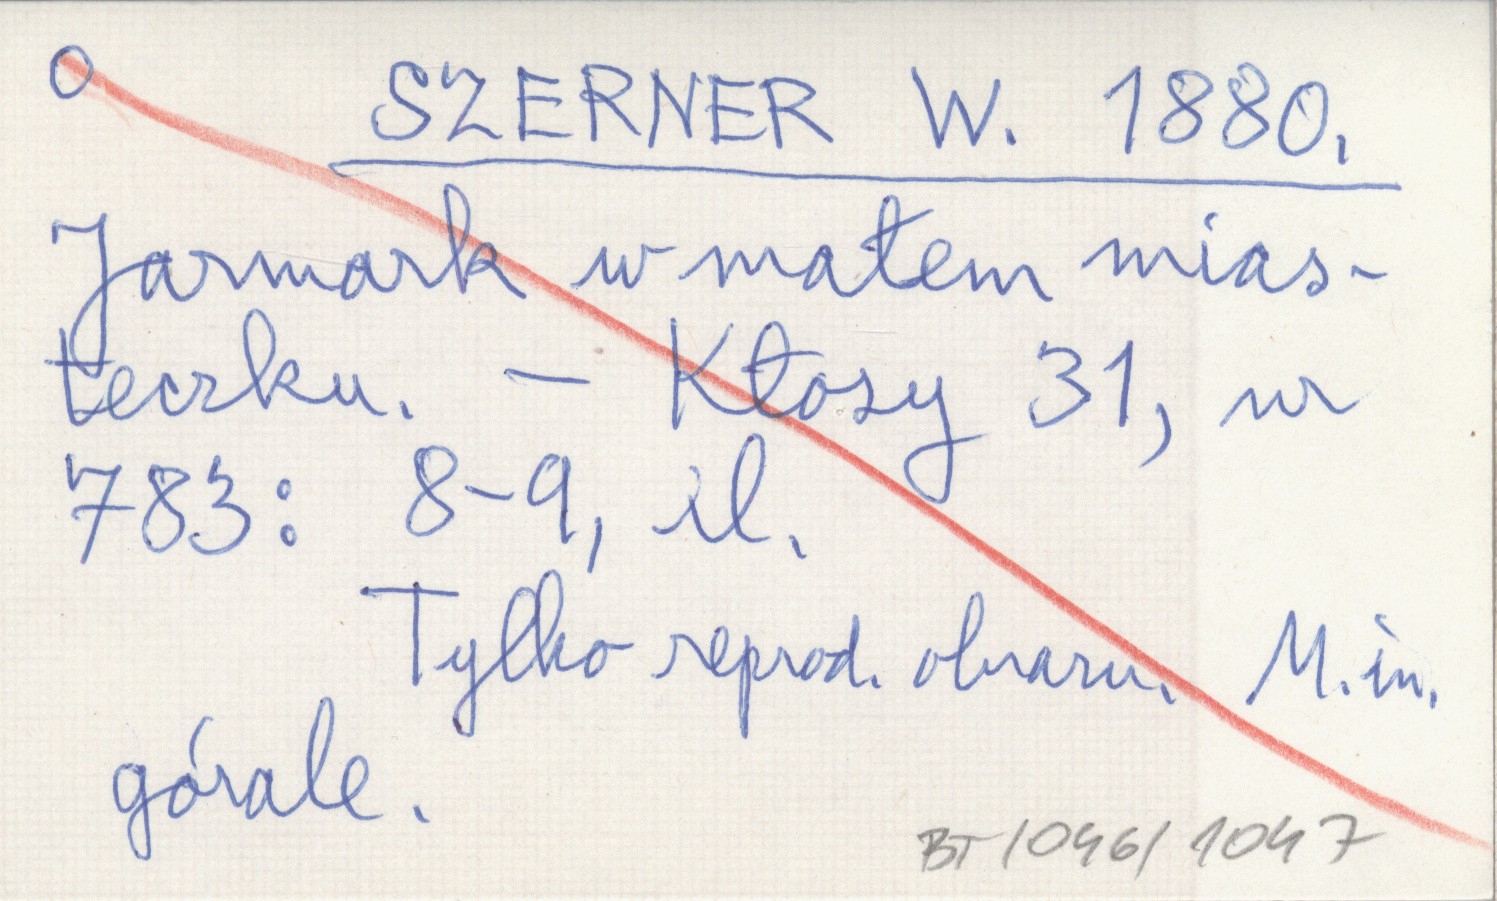 O SZERNER W. 1880.
Jarmark w małem mias-
teczku. — Kłosy 31, nr
783: 8-9, il.
Tylko reprod. obrazu. M.in.
górale.
BT/046/1047